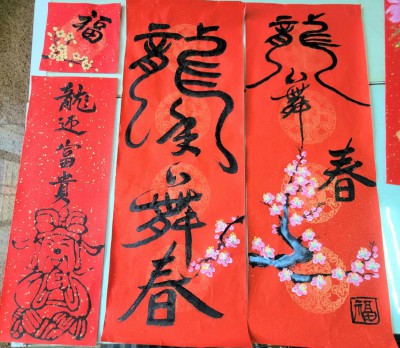 福
龍迎富貴
龍年舞春
龍舞春
福